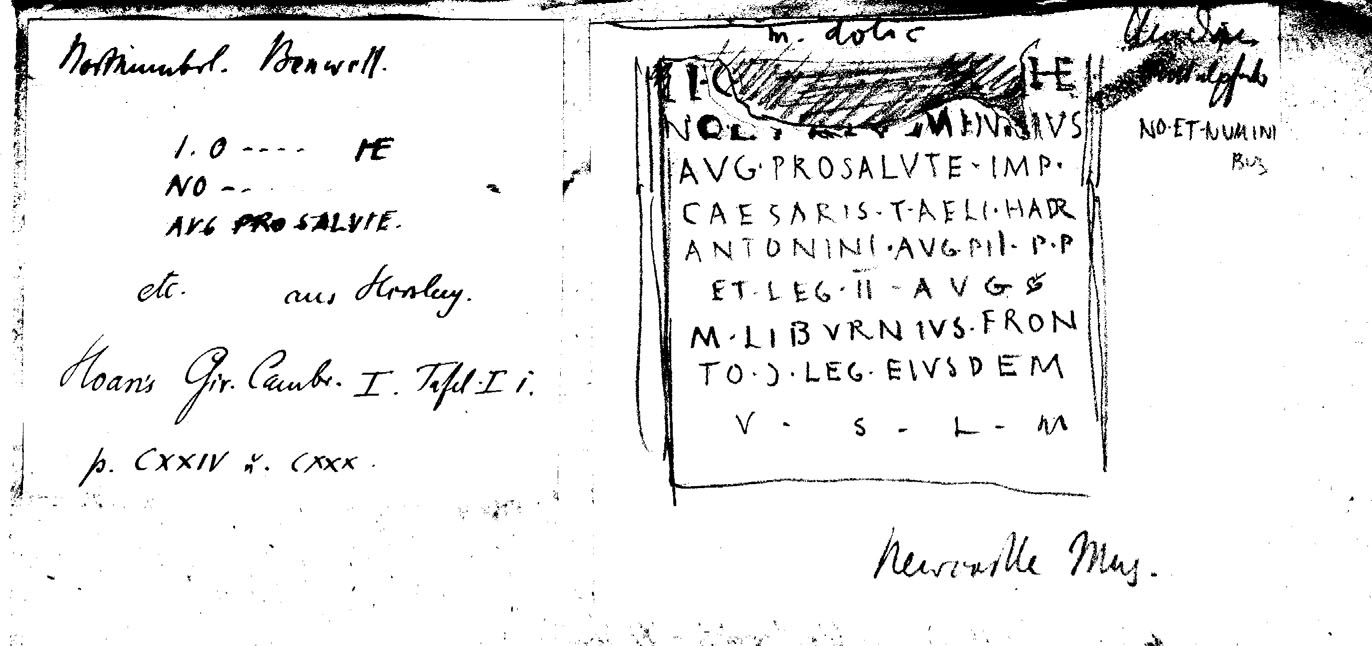 Northumbrl. Benwell.
I. O ---- HE
NO --
AVG PRO SALVTE.
etc. aus Horsley.
Hoare's Gir. Cambr. I. Tafel I i.
p. CXXIV u. CXXX.
m. dolic
I·O HE
NO
AVG·PROSALVTE·IMP·
CAESARIS·T·AELI·HADR
ANTONINI·AVG·PII·P·P
ET·LEG·II·AVG
M·LIBVRNIVS·FRON
TO·Ɔ·LEG·EIVSDEM
V · S · L · M
NO·ET·NUMINI
BUS
Newcastle Mus.